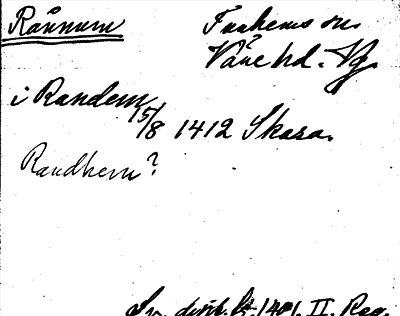 Rånnum
Fuxherns sn
Väne hd. Vg
i Randem 15/8 1412 Skara.
Randhem?
Sv. dipl. fr. 1401. II. Reg.